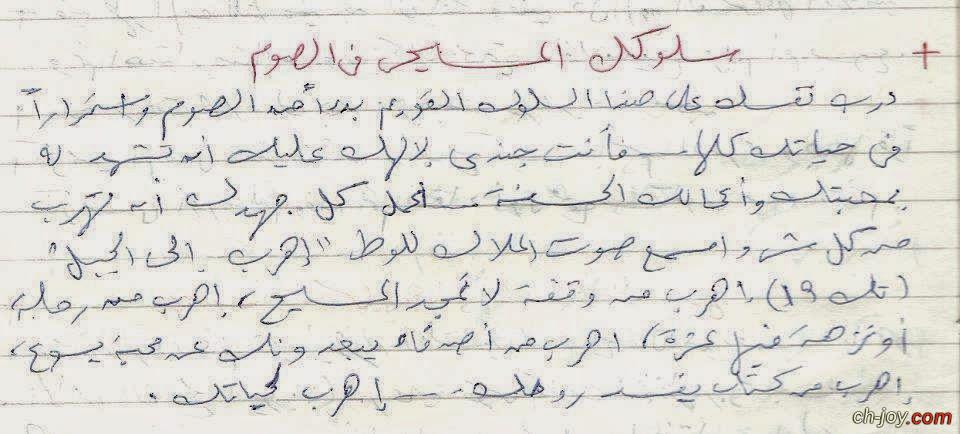 + سلوكك المسيحى فى الصوم
درب نفسك على هذا السلوك القويم بدءاً من الصوم واستمراراً
فى حياتك كلها... فأنت جندى لإلهك عليك أن تشهد له
بمحبتك وأعمالك الحسنة... إعمل كل جهدك أن تهرب
من كل شر واسمع صوت الملاك للوط "إهرب إلى الجبل"
(تك ١٩) اهرب من وقفة لا تمجد المسيح، إهرب من رحلة
أو نزهة فيها عثرة، اهرب من أصدقاء يبعدونك عن محبة يسوع،
إهرب من كتاب يفسد روحك.... إهرب لحياتك.
ch-joy.com